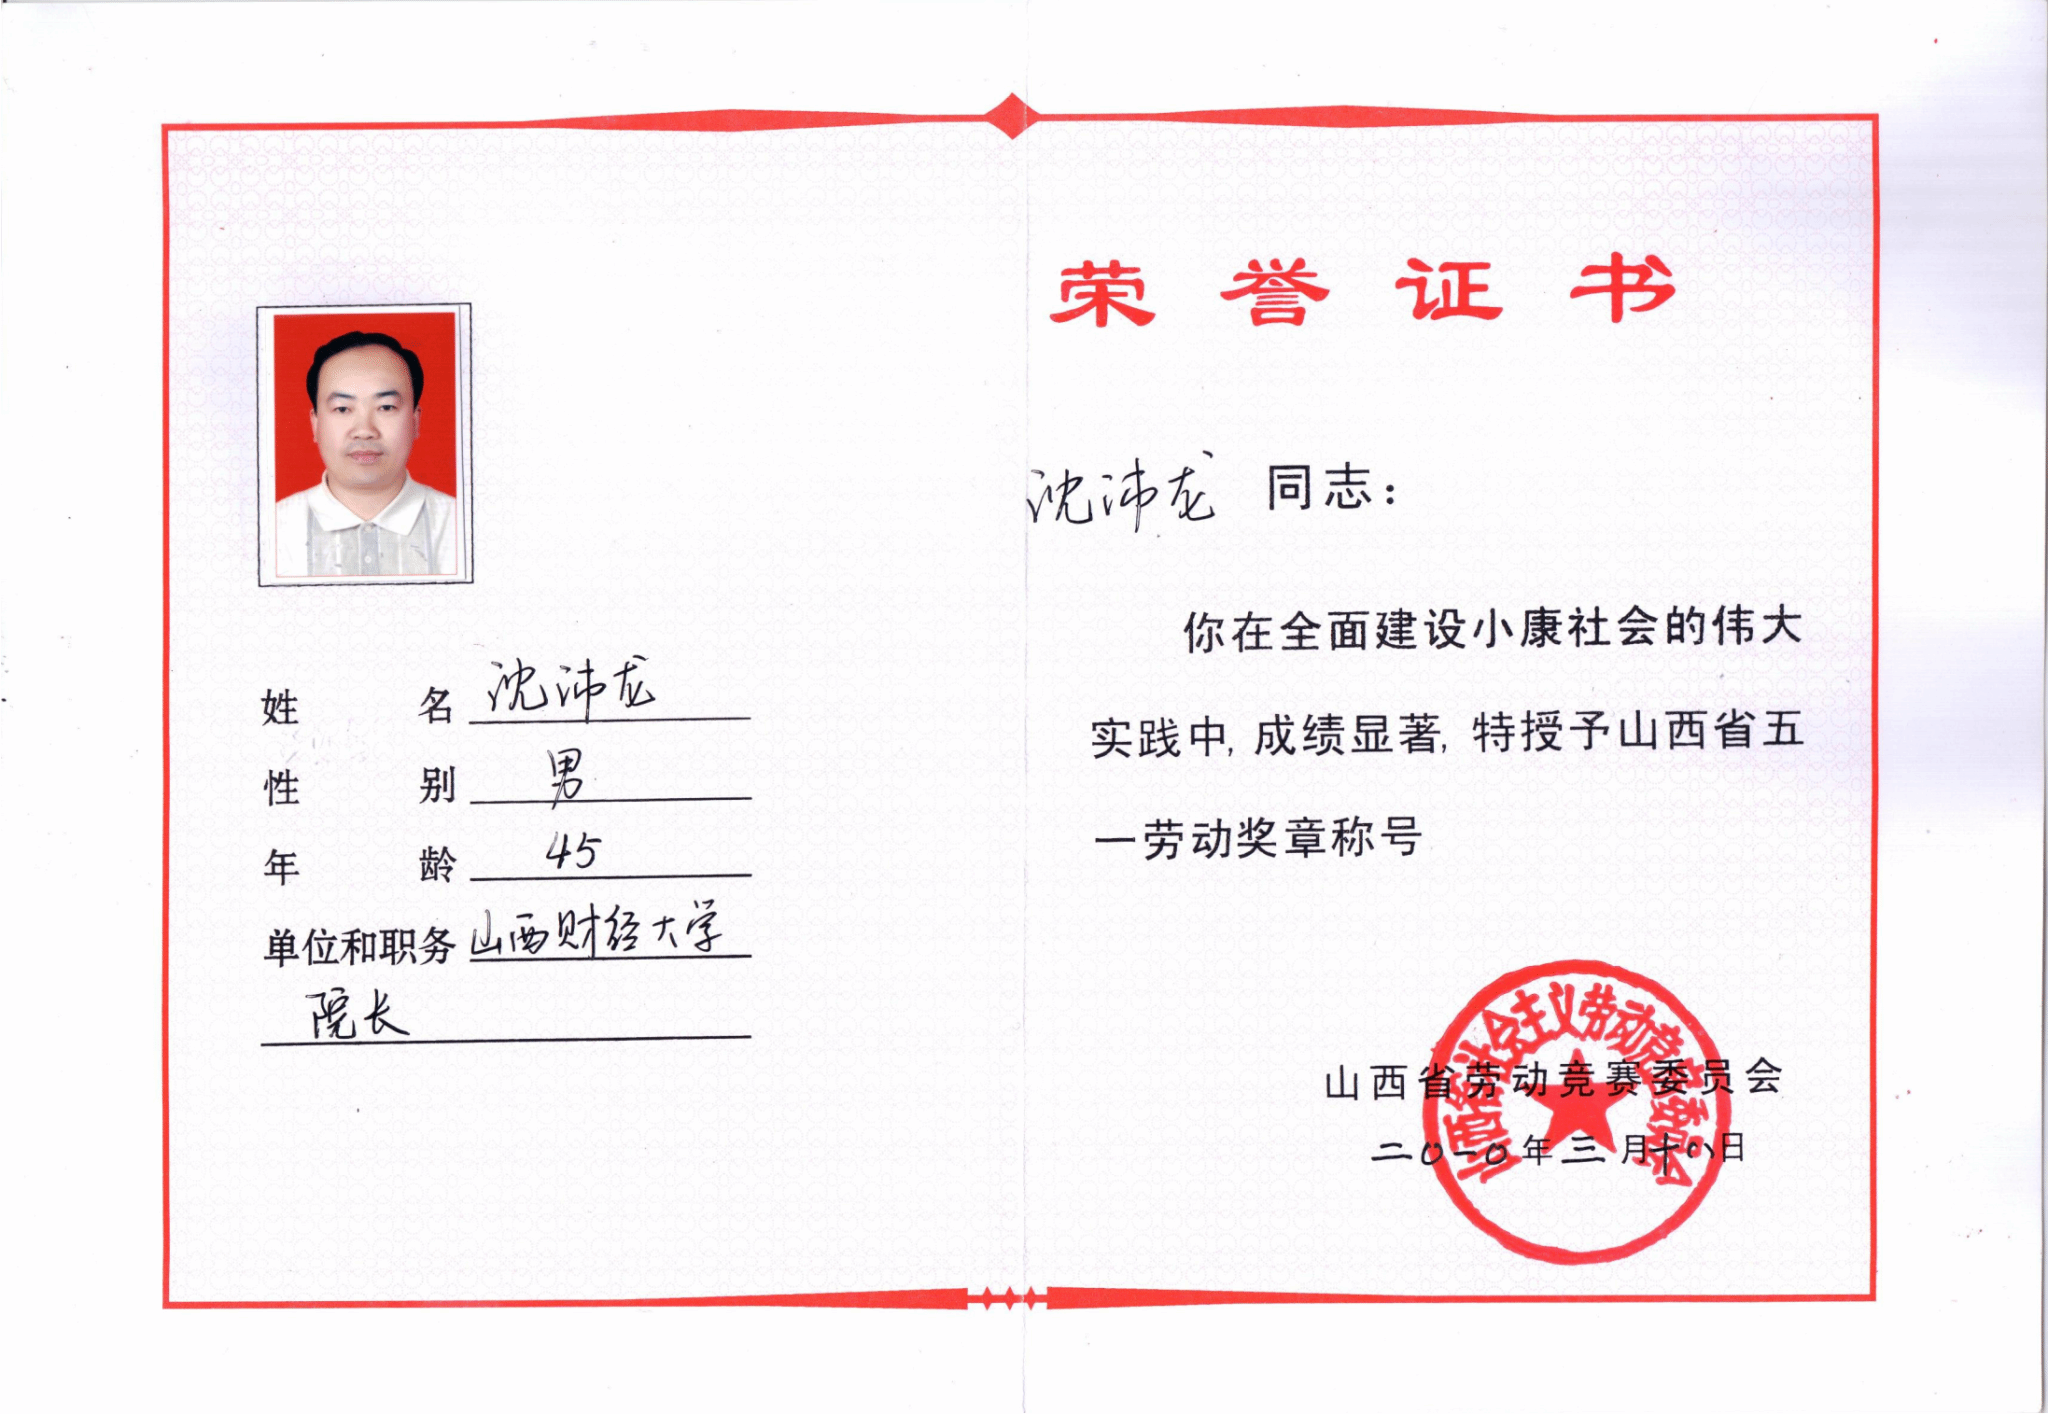 姓名 沈沛龙
性别 男
年龄 45
单位和职务 山西财经大学
院长
荣誉证书
沈沛龙 同志：
你在全面建设小康社会的伟大
实践中, 成绩显著, 特授予山西省五
一劳动奖章称号
山西省劳动竞赛委员会
二〇一〇年三月十八日
山西省社会主义劳动竞赛委员会